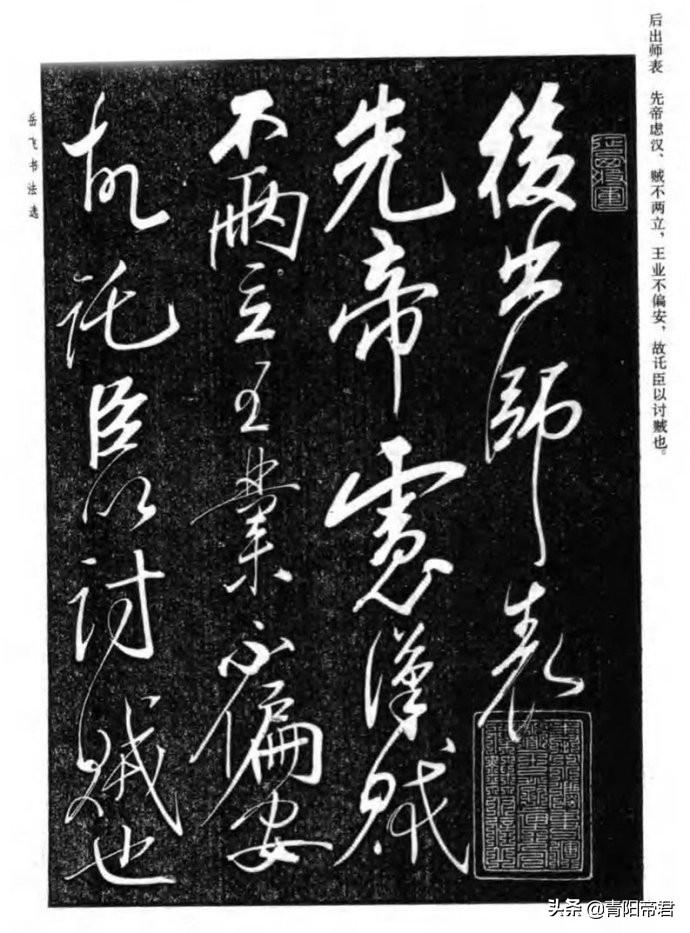 后出师表　先帝虑汉、贼不两立，王业不偏安，故讬臣以讨贼也。
後出師表
先帝慮漢賊
不兩立王業不偏安
故託臣以討賊也
岳飞书法选
头条 @青阳帝君